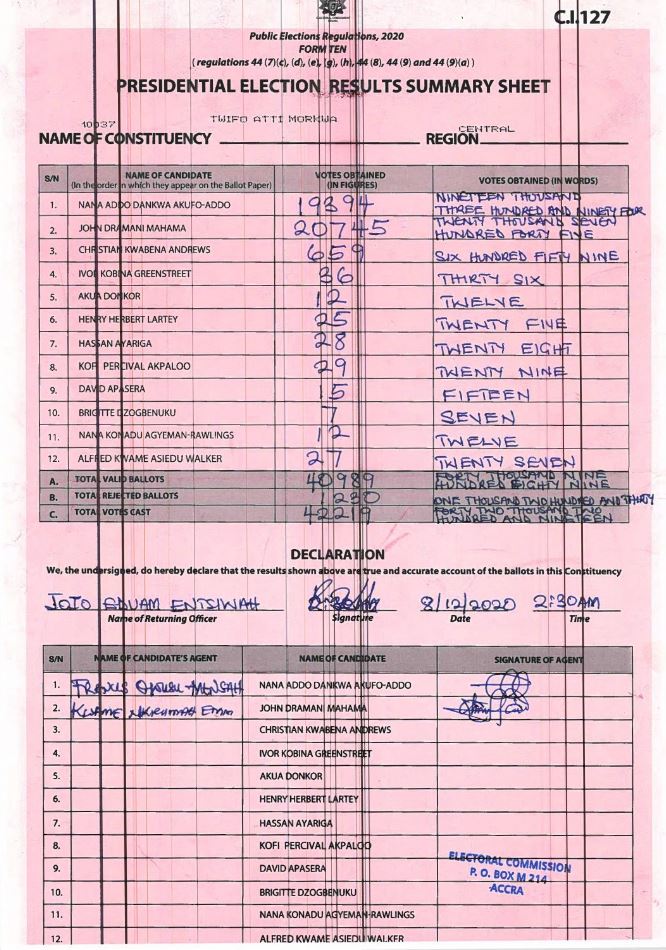 C.I.127
Public Elections Regulations, 2020
FORM TEN
( regulations 44 (7)(c), (d), (e), (g), (h), 44 (8), 44 (9) and 44 (9)(a) )
PRESIDENTIAL ELECTION RESULTS SUMMARY SHEET
10037 TWIFO ATTI MORKWA CENTRAL
NAME OF CONSTITUENCY REGION
S/N NAME OF CANDIDATE (In the order in which they appear on the Ballot Paper) VOTES OBTAINED (IN FIGURES) VOTES OBTAINED (IN WORDS)
1. NANA ADDO DANKWA AKUFO-ADDO 19394 NINETEEN THOUSAND THREE HUNDRED AND NINETY FOR
2. JOHN DRAMANI MAHAMA 20745 TWENTY THOUSAND SEVEN HUNDRED FORTY FIVE
3. CHRISTIAN KWABENA ANDREWS 659 SIX HUNDRED FIFTY NINE
4. IVOR KOBINA GREENSTREET 36 THIRTY SIX
5. AKUA DONKOR 12 TWELVE
6. HENRY HERBERT LARTEY 25 TWENTY FIVE
7. HASSAN AYARIGA 28 TWENTY EIGHT
8. KOFI PERCIVAL AKPALOO 29 TWENTY NINE
9. DAVID APASERA 15 FIFTEEN
10. BRIGITTE DZOGBENUKU 7 SEVEN
11. NANA KONADU AGYEMAN-RAWLINGS 12 TWELVE
12. ALFRED KWAME ASIEDU WALKER 27 TWENTY SEVEN
A. TOTAL VALID BALLOTS 40989 FORTY THOUSAND NINE HUNDRED EIGHTY NINE
B. TOTAL REJECTED BALLOTS 1230 ONE THOUSAND TWO HUNDRED AND THIRTY
C. TOTAL VOTES CAST 42219 FORTY TWO THOUSAND TWO HUNDRED AND NINETEEN
DECLARATION
We, the undersigned, do hereby declare that the results shown above are true and accurate account of the ballots in this Constituency
JOJO EDUAM ENTSIWAH 8/12/2020 2:30AM
Name of Returning Officer Signature Date Time
S/N NAME OF CANDIDATE'S AGENT NAME OF CANDIDATE SIGNATURE OF AGENT
1. NANA ADDO DANKWA AKUFO-ADDO
2. KWAME NKRUMAH JOHN DRAMANI MAHAMA
3. CHRISTIAN KWABENA ANDREWS
4. IVOR KOBINA GREENSTREET
5. AKUA DONKOR
6. HENRY HERBERT LARTEY
7. HASSAN AYARIGA
8. KOFI PERCIVAL AKPALOO
9. DAVID APASERA
10. BRIGITTE DZOGBENUKU
11. NANA KONADU AGYEMAN-RAWLINGS
12. ALFRED KWAME ASIEDU WALKER
ELECTORAL COMMISSION
P. O. BOX M 214
ACCRA